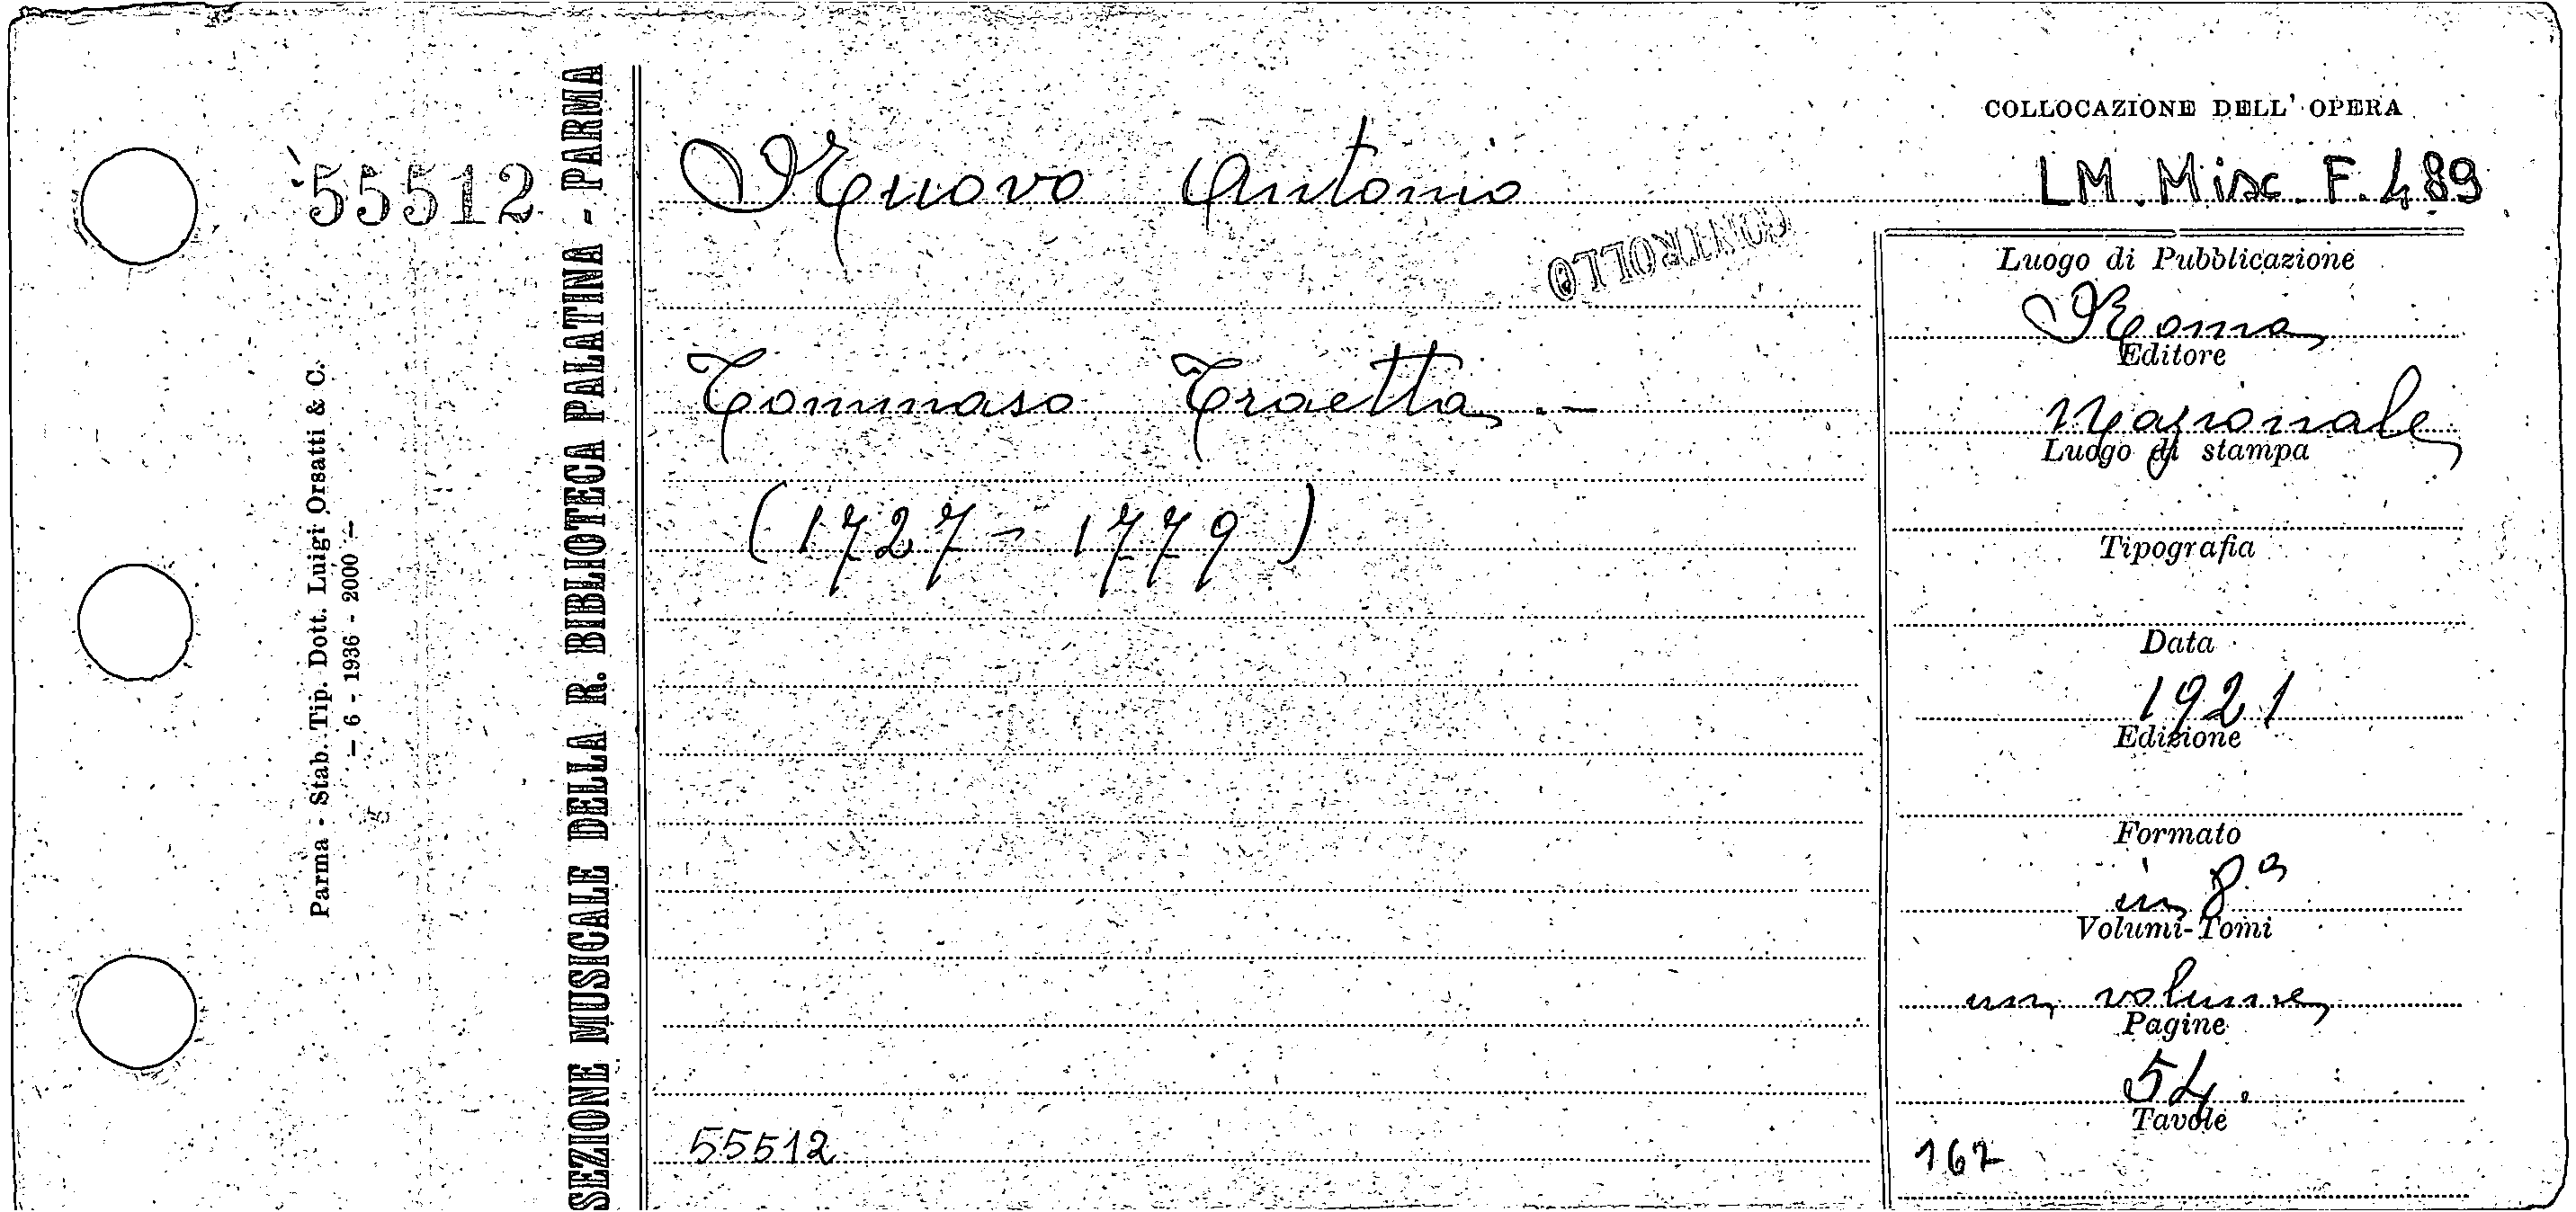 COLLOCAZIONE DELL' OPERA
55512
Ruovo Antonio
LM. Misc. F. 489
CONTROLLO
Luogo di Pubblicazione
Roma
Editore
Tommaso Traetta .-
Nazionale
Luogo di stampa
(1727 - 1779)
Tipografia
Data
1921
Edizione
Formato
in 8.°
Volumi-Tomi
un volume
Pagine
54.
Tavole
55512
162
SEZIONE MUSICALE DELLA R. BIBLIOTECA PALATINA - PARMA
Parma - Stab. Tip. Dott. Luigi Orsatti & C.
— 6 - 1936 - 2000 —